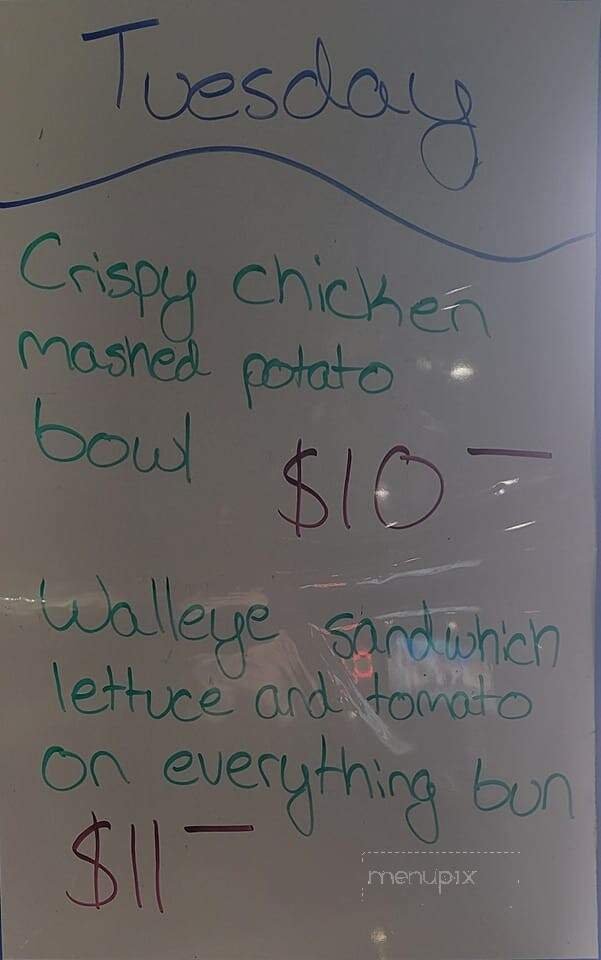 Tuesday
Crispy chicken
mashed potato
bowl
$10 —
Walleye sandwhich
lettuce and tomato
on everything bun
$11 —
menupix